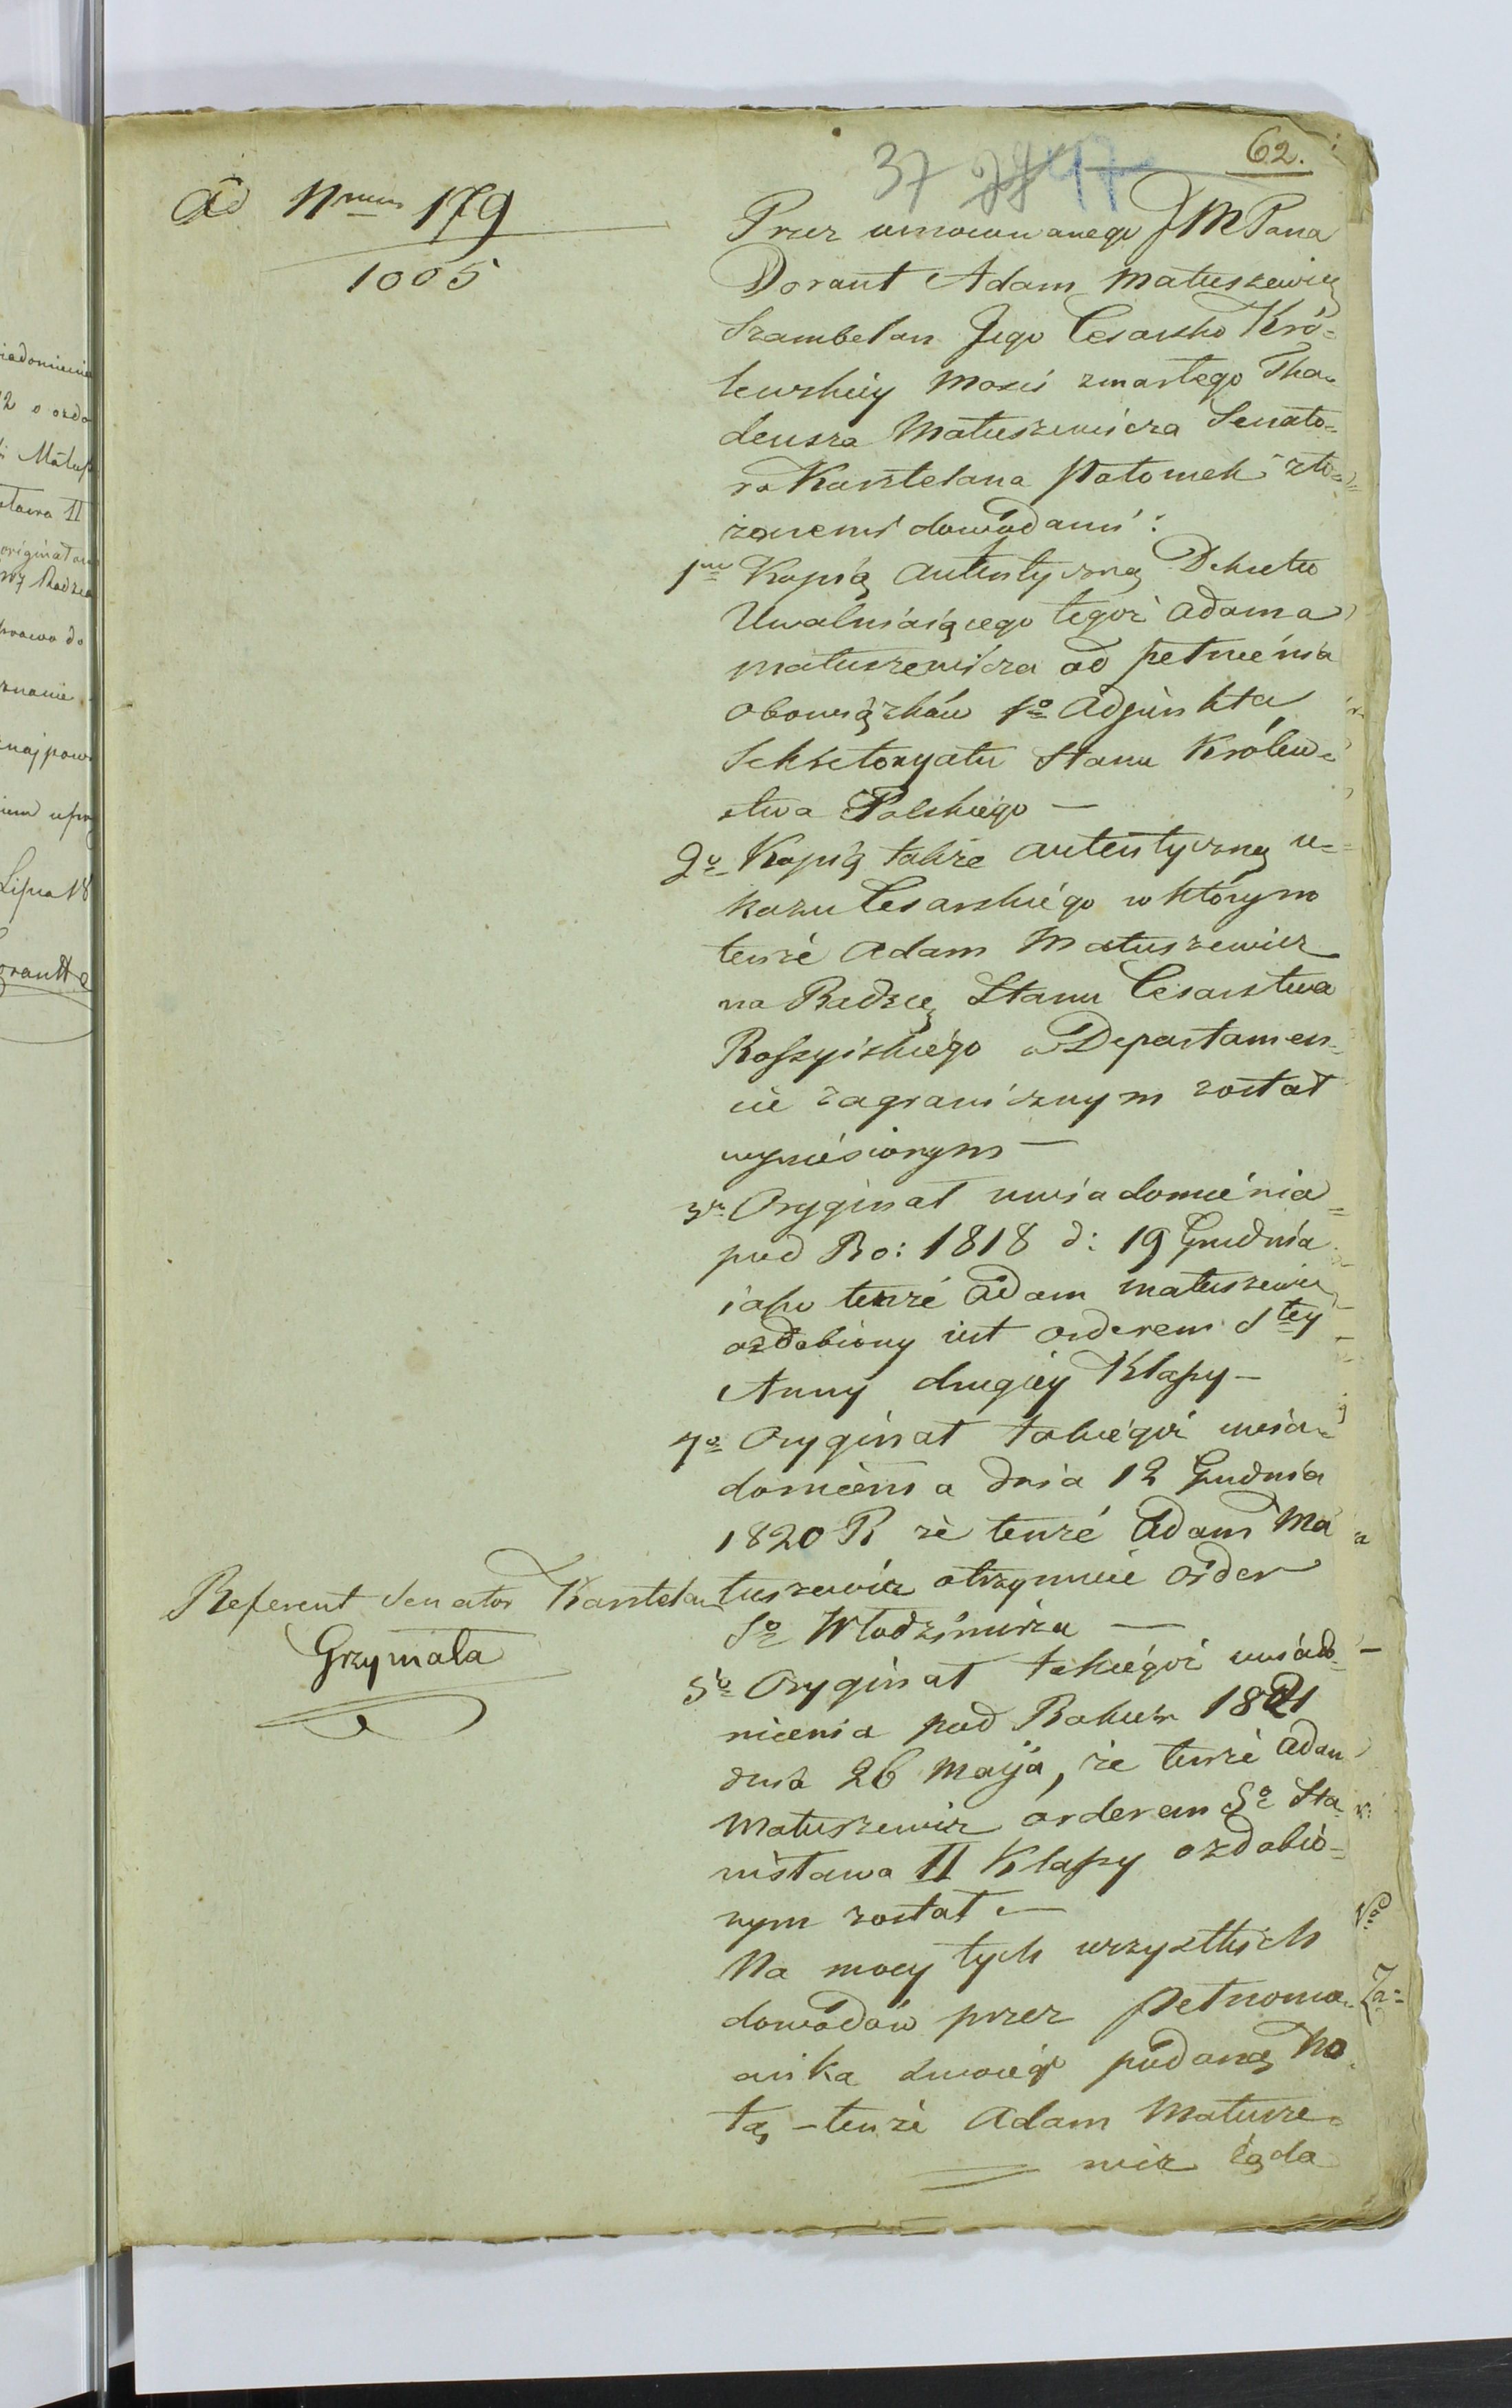 62.
37
17
Ad Nrum 179
1005
Przez umocowanego JMPana
Dorant Adam Matuszewicz
Szambelan Jego Cesarsko Kró=
lewskiéy Mosci zmarłego Tha=
deusza Matuszewicza Senato=
ra Kasztelana Potomek zło=
żonemi dowodami:
1mo Kopią autentyczną Dekretu
Uwalniaiącego tegoż Adama
Matuszewicza od pełnienia
obowiązków 1o Adjunkta
Sekretaryatu Stanu Królew=
stwa Polskiego —
2o Kopią także autentyczną u=
kazu Cesarskiégo w którym
tenże Adam Matuszewicz
na Radzcę Stanu Cesarstwa
Rossyiskiégo w Departamen=
cie zagranicznym został
wyniésionym —
3o Oryginał uwiadomiénia
pod Ro: 1818 d: 19 Grudnia
iako tenże Adam Matuszewicz
ozdobiony iest orderem Stey
Anny drugiéy Klassy —
4o Oryginał takiégoż uwia=
domienia dnia 12 Grudnia
1820 R że tenże Adam Ma
tuszewicz otrzymuie Order
So Włodzimirza —
5o Oryginał takiégoż uwiado=
mienia pod Rokiem 1821
dnia 26 Maja, że tenże Adam
Matuszewicz orderem So Sta
nisława II Klassy ozdobio=
nym został —
Na mocy tych wszystkich
dowodów przez Pełnomo=
cnika swoiégo podaną No
tą — tenże Adam Matusze=
wicz żąda
Referent Senator Kasztelan
Grzymała